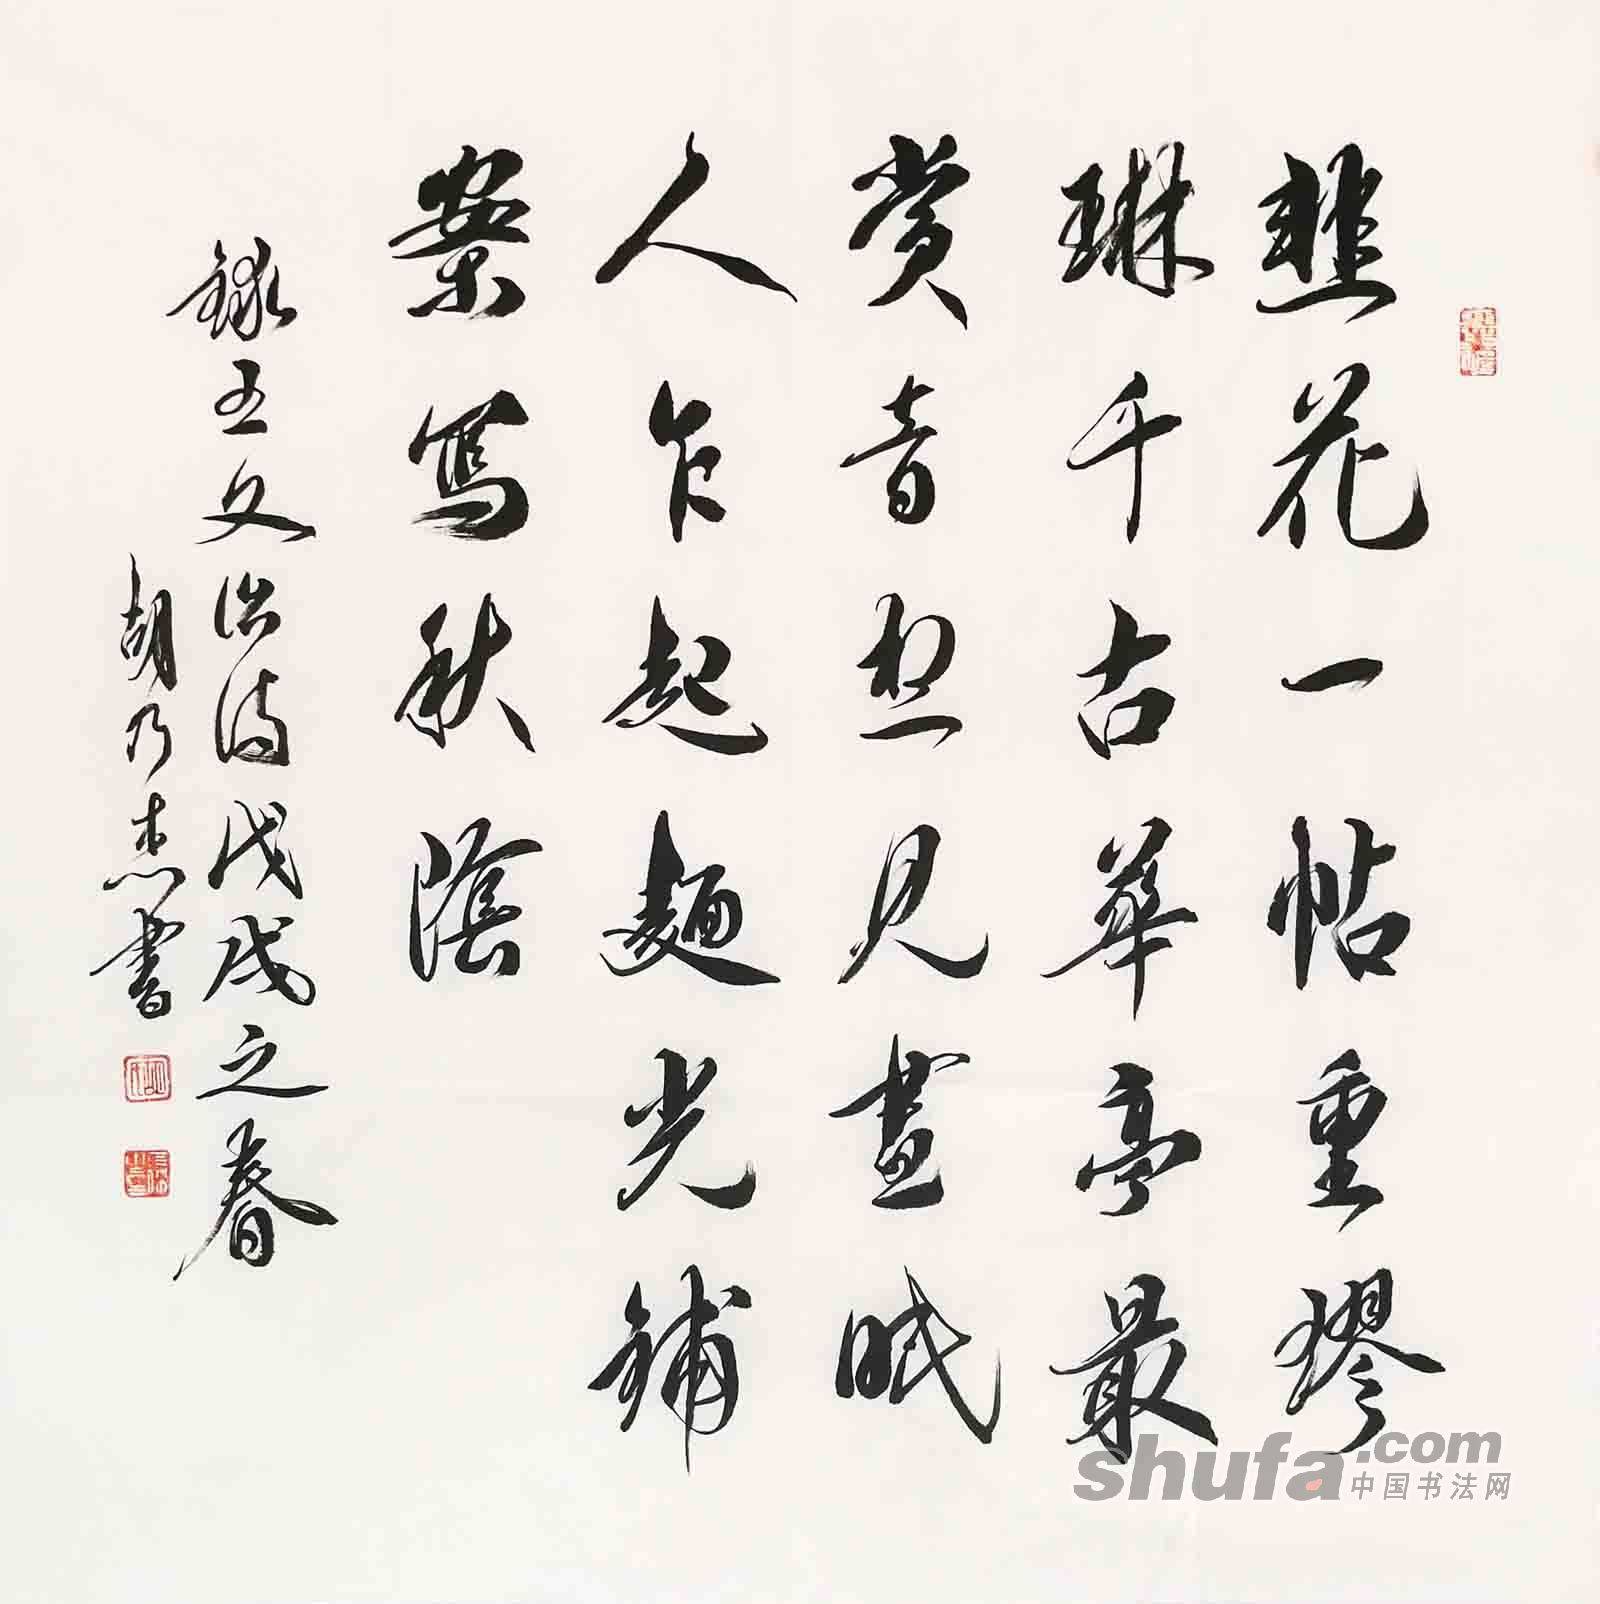 韭花一帖重璆
琳千古華亭最
賞音想見晝眠
人乍起麵光鋪
案寫秋陰
錄王文治詩戊戌之春
胡乃杰書
shufa.com
中国书法网